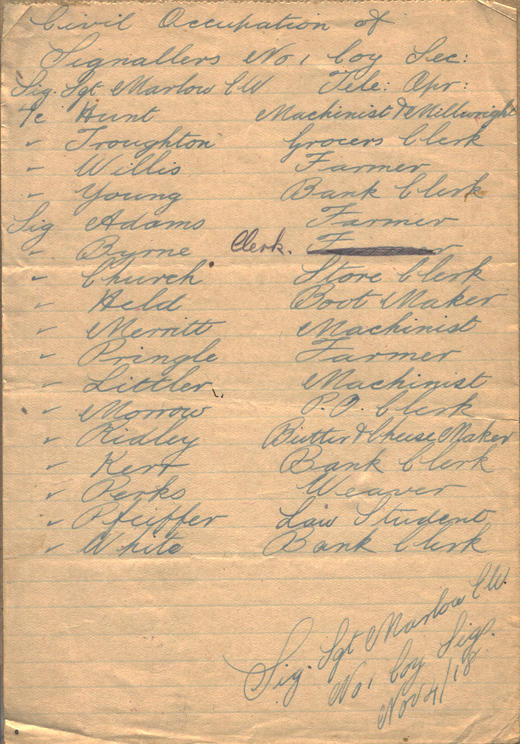 Civil Occupation of
Signallers No 1 Coy Sec:
Sig. Sgt Marlow CW Tele: Opr:
2/c Hunt Machinist & Millwright
" Troughton Grocers Clerk
" Willis Farmer
" Young Bank Clerk
Sig Adams Farmer
" Byrne Clerk.
" Church Store Clerk
" Held Boot Maker
" Merritt Machinist
" Pringle Farmer
" Littler Machinist
" Morrow P.O. Clerk
" Ridley Butter & Cheese Maker
" Kerr Bank Clerk
" Perks Weaver
" Pfeiffer Law Student
" White Bank Clerk
Sig. Sgt Marlow CW.
No 1 Coy Sigs.
Nov 4/18